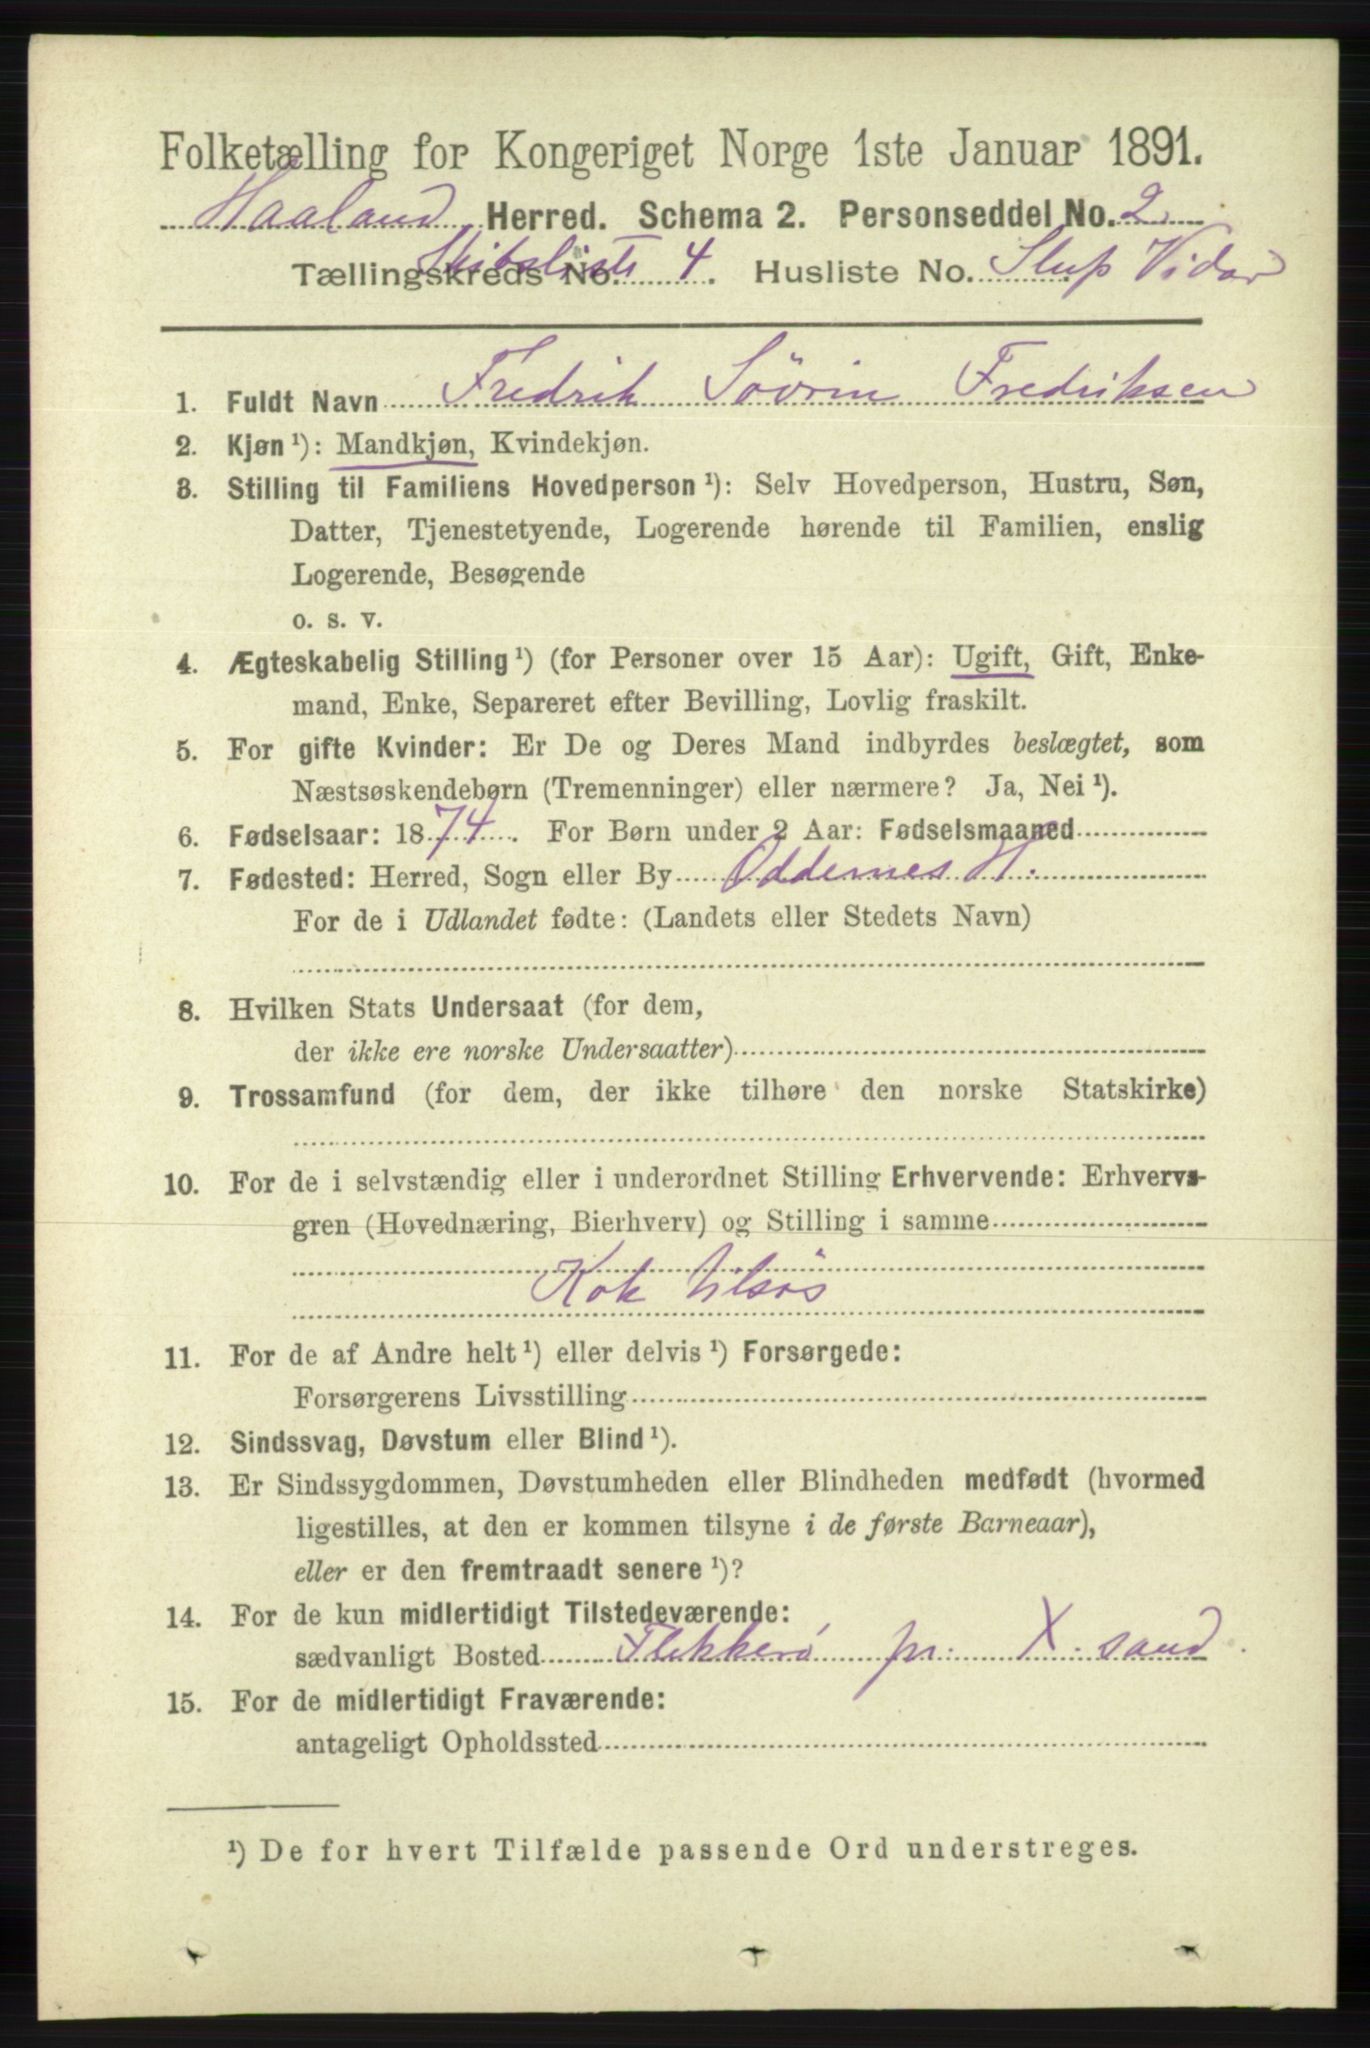 Folketælling for Kongeriget Norge 1ste Januar 1891.
Haaland Herred. Schema 2. Personseddel No. 2
Tællingskreds No. Skibsliste 4. Husliste No. Slup Vidar
1. Fuldt Navn Fredrik Sövrin Fredriksen
2. Kjøn ¹): Mandkjøn, Kvindekjøn.
3. Stilling til Familiens Hovedperson ¹): Selv Hovedperson, Hustru, Søn,
Datter, Tjenestetyende, Logerende hørende til Familien, enslig
Logerende, Besøgende
o. s. v.
4. Ægteskabelig Stilling ¹) (for Personer over 15 Aar): Ugift, Gift, Enke-
mand, Enke, Separeret efter Bevilling, Lovlig fraskilt.
5. For gifte Kvinder: Er De og Deres Mand indbyrdes beslægtet, som
Næstsøskendebørn (Tremenninger) eller nærmere? Ja, Nei ¹).
6. Fødselsaar: 1874. For Børn under 2 Aar: Fødselsmaaned
7. Fødested: Herred, Sogn eller By Oddernes H.
For de i Udlandet fødte: (Landets eller Stedets Navn)
8. Hvilken Stats Undersaat (for dem,
der ikke ere norske Undersaatter)
9. Trossamfund (for dem, der ikke tilhøre den norske Statskirke)
10. For de i selvstændig eller i underordnet Stilling Erhvervende: Erhvervs-
gren (Hovednæring, Bierhverv) og Stilling i samme
Kok tilsös
11. For de af Andre helt ¹) eller delvis ¹) Forsørgede:
Forsørgerens Livsstilling
12. Sindssvag, Døvstum eller Blind ¹).
13. Er Sindssygdommen, Døvstumheden eller Blindheden medfødt (hvormed
ligestilles, at den er kommen tilsyne i de første Barneaar),
eller er den fremtraadt senere ¹)?
14. For de kun midlertidigt Tilstedeværende:
sædvanligt Bosted Flekkerö pr. X.sand.
15. For de midlertidigt Fraværende:
antageligt Opholdssted
¹) De for hvert Tilfælde passende Ord understreges.